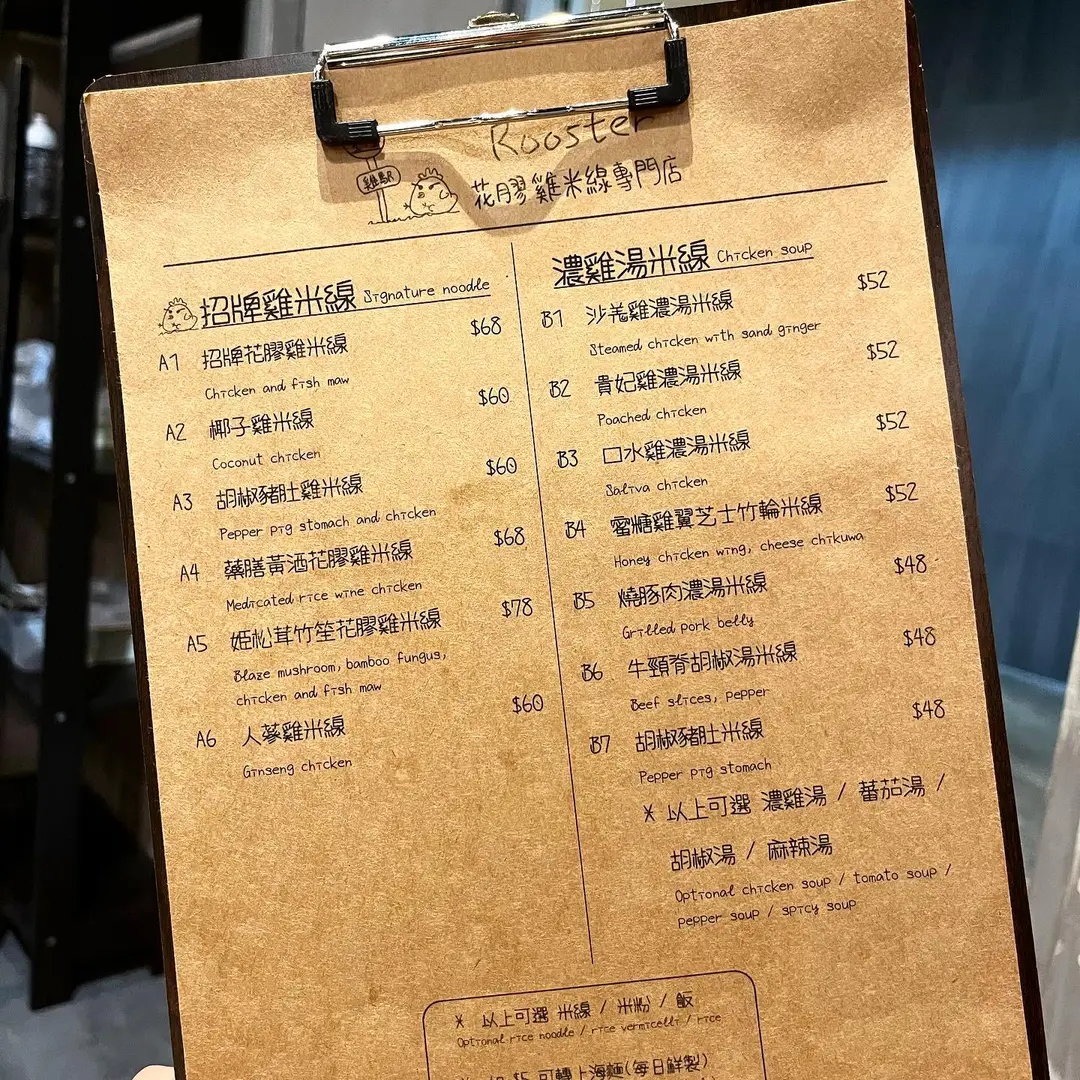 Rooster
雞駅
花膠雞米線專門店
招牌雞米線 Signature noodle
A1 招牌花膠雞米線 $68
Chicken and fish maw
A2 椰子雞米線 $60
Coconut chicken
A3 胡椒豬肚雞米線 $60
Pepper pig stomach and chicken
A4 藥膳黃酒花膠雞米線 $68
Medicated rice wine chicken
A5 姫松茸竹笙花膠雞米線 $78
Blaze mushroom, bamboo fungus,
chicken and fish maw
A6 人蔘雞米線 $60
Ginseng chicken
濃雞湯米線 Chicken soup
B1 沙羗雞濃湯米線 $52
Steamed chicken with sand ginger
B2 貴妃雞濃湯米線 $52
Poached chicken
B3 口水雞濃湯米線 $52
Saliva chicken
B4 蜜糖雞翼芝士竹輪米線 $52
Honey chicken wing, cheese chikuwa
B5 燒豚肉濃湯米線 $48
Grilled pork belly
B6 牛頸脊胡椒湯米線 $48
Beef slices, pepper
B7 胡椒豬肚米線 $48
Pepper pig stomach
* 以上可選 濃雞湯 / 蕃茄湯 /
胡椒湯 / 麻辣湯
Optional chicken soup / tomato soup /
pepper soup / spicy soup
* 以上可選 米線 / 米粉 / 飯
Optional rice noodle / rice vermicelli / rice
$5 可轉上海麵(每日鮮製)